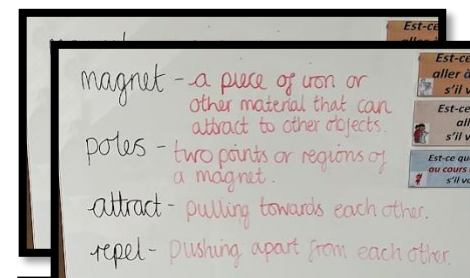 magnet - a piece of iron or
other material that can
attract to other objects.
poles - two points or regions of
a magnet.
attract - pulling towards each other.
repel - pushing apart from each other.
Est-ce
Est-ce
aller à
s'il v
Est-ce
all
s'il v
Est-ce qu
au cours
s'il vo